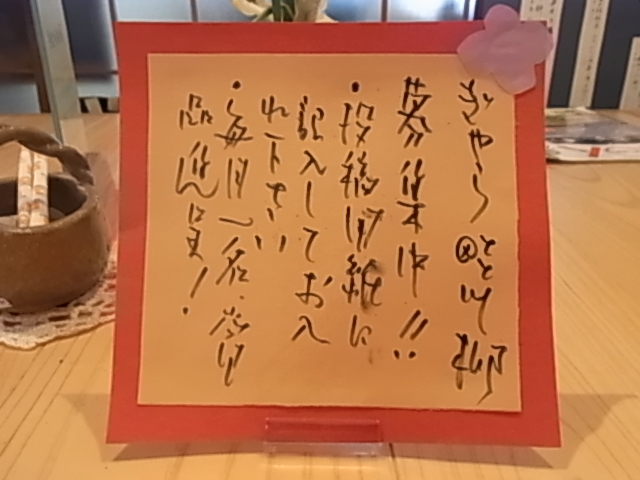 ぎゃらりととや 柳
募集中!!
・投稿用紙に
記入してお入
れ下さい
・毎月一名、賞
品進呈!